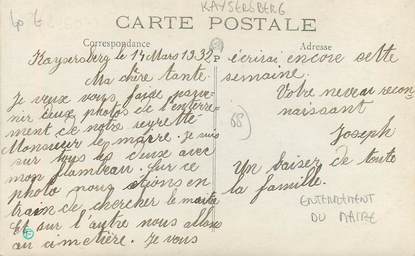 KAYSERSBERG
CARTE POSTALE
Correspondance
Adresse
Kaysersberg le 14 Mars 1932
Ma chère tante
Je veux vous faire parve-
nir deux photos de l'enterre-
ment de notre regretté
Monsieur le maire. Je suis
sur tous les deux avec
mon flambeau. Sur ce
photo nous étions en
train de chercher le maire
Et sur l'autre nous allons
au cimetière. Je vous
écrirai encore cette
semaine.
Votre neveu recon
naissant
Joseph
Un baiser de toute
la famille.
68
ENTERREMENT
DU MAIRE